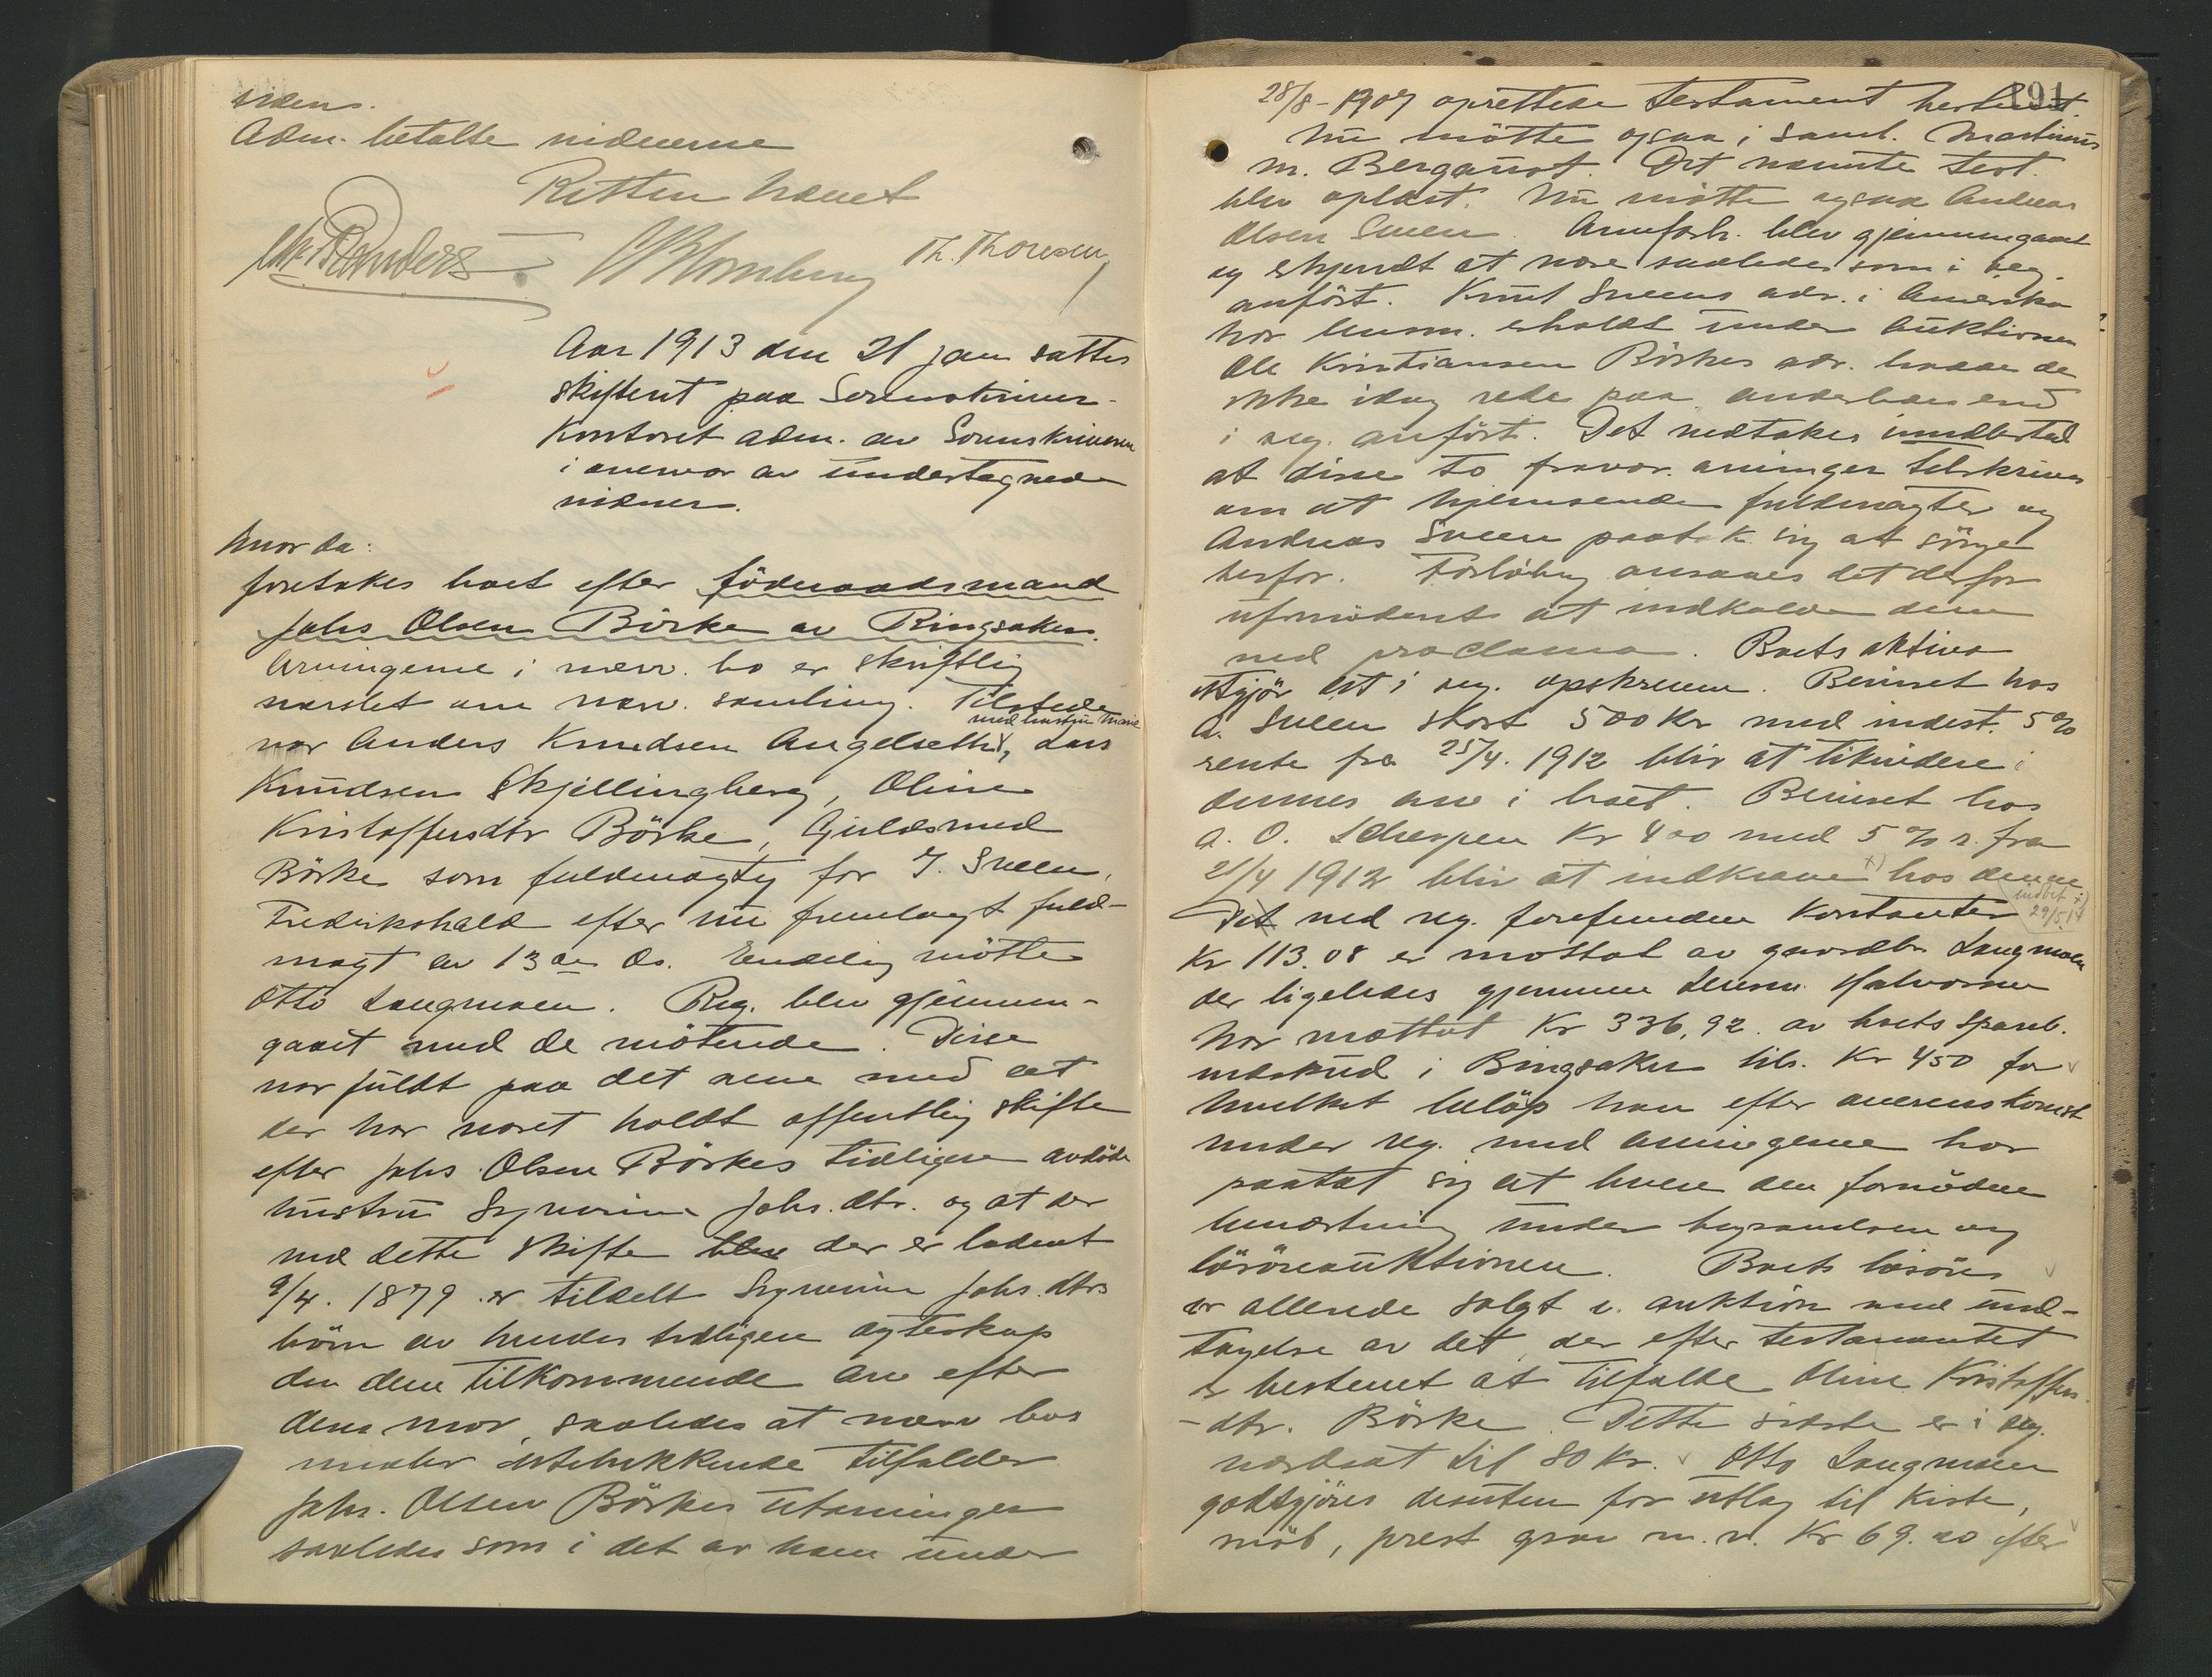 videns.
Adm. betalte vidnerne
Retten hævet
Th. Thoresen
Aar 1913 den 21 jan sattes
skifteret paa Sorenskriver-
kontoret adm. av Sorenskriveren
i overvær av undertegnede
vidner.
Hvor da:
foretokes boet efter föderaadsmand
Johs Olsen Börke av Ringsaker.
Arvingerne i nærv. bo er skriftlig
varslet om nærv. samling. Tilstede
var Anders Knudsen Angelseth med hustru Marie, Lars
Knudsen Skjellingberg, Oline
Kristoffersdtr Börke, Guldsmed
Börke som fuldmægtig for J. Sveen,
Fredrikshald efter nu fremlagt fuld-
magt av 13de ds. Endelig mötte
Otto Langmoen. Reg. blev gjennem-
gaaet med de mötende. Disse
var fuldt paa det rene med at
der har været holdt offentlig skifte
efter Johs Olsen Börkes tidligere avdöde
hustru Syverine Johs.dtr. og at der
ved dette skifte blev der er sluttet
9/4. 1879 er tildelt Syverine Johs.dtrs
börn av hendes tidligere egteskap
den dem tilkommende arv efter
deres mor, saaledes at nærv bos
midler utelukkende tilfalder
Johs. Olsen Börkes utarvinger
saaledes som i det av ham under
191
28/8-1907 oprettede testament bestemt.
Nu mötte ogsaa i saml. Martinus
M. Bergaust. Det nævnte test.
blev oplæst. Nu mötte ogsaa Andreas
Olsen Sveen. Arveforh. blev gjennemgaaet
og erkjendt at være saaledes som i reg.
anfört. Knut Sveens adr. i Amerika
har lensm. erholdt under auktionen
Ole Kristiansen Börkes adr. hadde de
ikke idag rede paa anderledes end
i reg. anfört. Det vedtokes imidlertid
at disse to fravær. arvinger tilskrives
om at hjemsende fuldmagter og
Andreas Sveen paatok sig at sörge
herfor. Forlöbig ansaaes det derfor
ufornödent at indkalde dem
ved proclama. Boets aktiva
utgjör det i reg. opskrevne. Beviset hos
A. Sveen stort 500 kr med indest. 5%
rente fra 25/4. 1912 blir at likvidere i
dennes arv i boet. Beviset hos
A. O. Schespen Kr 400 med 5% r. fra
21/4 1912 blir at indkræve x) hos denne
indbet x) 29/5 14
Det ved reg. forefundne kontanter
Kr 113.08 er mottat av gaardbr. Langmoen
der ligeledes gjennem lensm. Halvorsen
har mottat Kr 336,92 av boets spareb.
indskud i Ringsaker tils. Kr 450 for
hvilket belöp han efter overenskomst
under reg. med arvingerne har
paatat sig at levere den fornödne
bevertning under begravelsen og
lösöreauktionen. Boets lösöre
er allerede solgt v. auktion med und-
tagelse av det der efter testamentet
er bestemt at tilfalde Oline Kristoffers-
-dtr. Börke. Dette sidste er i reg.
værdsat til 80 kr. Otto Langmoen
godtgjöres desuten for utlæg til kiste,
möb, prest grav m. v. Kr 69.20 efter